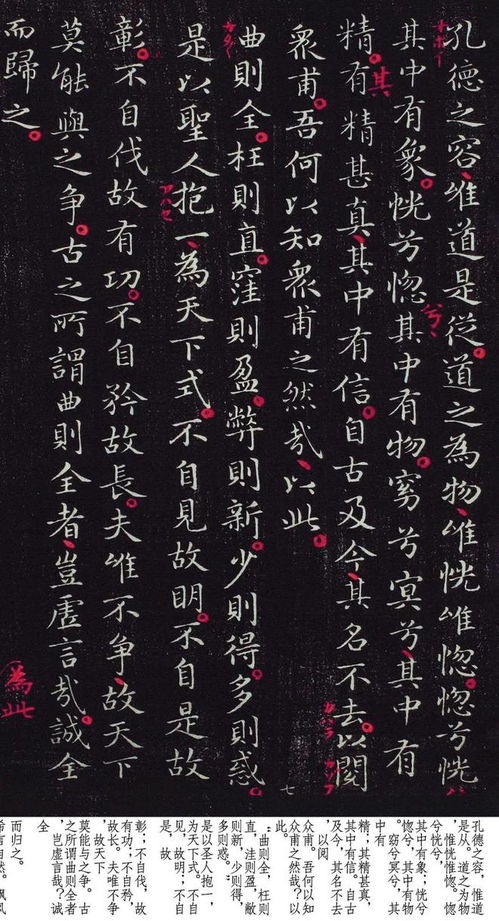 孔德之容唯道是従道之為物唯恍唯惚惚兮恍
其中有象恍兮惚其中有物窈兮冥兮其中有
兮
精有精甚真其中有信自古及今其名不去以閱
其
衆甫吾何以知衆甫之然哉以此
七
曲則全枉則直窪則盈弊則新少則得多則惑
是以聖人抱一為天下式不自見故明不自是故
彰不自伐故有功不自矜故長夫唯不争故天下
莫能與之争古之所謂曲則全者豈虚言哉誠全
為此
而歸之
孔德之容，惟道
是从。道之为物
，惟恍惟惚。惚
兮恍兮，
其中有象；恍兮
惚兮，其中有物
。窈兮冥兮，其
中有
精；其精甚真，
其中有信。自古
及今，其名不去
，以阅
众甫。吾何以知
众甫之然哉？以
此
。曲则全，枉则
直，洼则盈，敝
则新，少则得，
多则惑。
是以圣人抱一，
为天下式。不自
见，故明；不自
是，故
彰；不自伐，故
有功；不自矜，
故长。夫唯不争
，故天下
莫能与之争。古
之所谓曲则全者
，岂虚言哉？诚
全
而归之。
希言自然。飘风